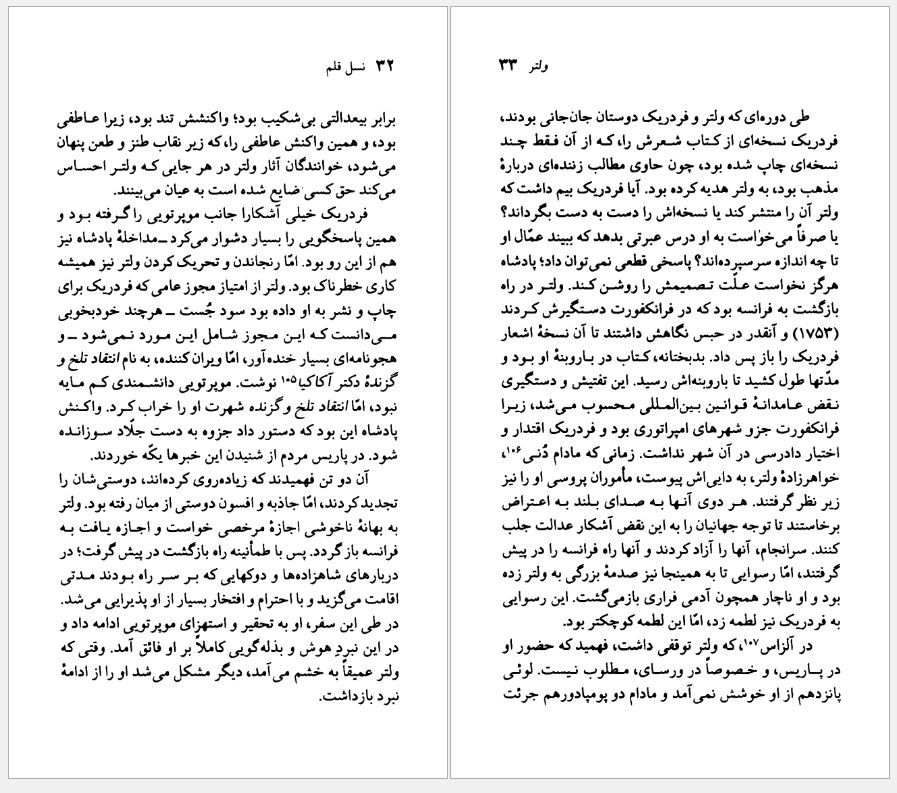 ۳۲ نسل قلم
برابر بیعدالتی بی‌شکیب بود؛ واکنشش تند بود، زیرا عاطفی
بود، و همین واکنش عاطفی را، که زیر نقاب طنز و طعن پنهان
می‌شود، خوانندگان آثار ولتر در هر جایی که ولتر احساس
می‌کند حق کسی ضایع شده است به عیان می‌بینند.
فردریک خیلی آشکارا جانب موپرتویی را گرفته بود و
همین پاسخگویی را بسیار دشوار می‌کرد ــ مداخلهٔ پادشاه نیز
هم از این رو بود. امّا رنجاندن و تحریک کردن ولتر نیز همیشه
کاری خطرناک بود. ولتر از امتیاز مجوز عامی که فردریک برای
چاپ و نشر به او داده بود سود جُست ــ هرچند خودبخوبی
می‌دانست که این مجوز شامل این مورد نمی‌شود ــ و
هجونامه‌ای بسیار خنده‌آور، امّا ویران کننده، به نام انتقاد تلخ و
گزندهٔ دکتر آکاکیا۱۰۵ نوشت. موپرتویی دانشمندی کم مایه
نبود، امّا انتقاد تلخ و گزنده شهرت او را خراب کرد. واکنش
پادشاه این بود که دستور داد جزوه به دست جلّاد سوزانده
شود. در پاریس مردم از شنیدن این خبرها یکّه خوردند.
آن دو تن فهمیدند که زیاده‌روی کرده‌اند، دوستی‌شان را
تجدید کردند، امّا جاذبه و افسون دوستی از میان رفته بود. ولتر
به بهانهٔ ناخوشی اجازهٔ مرخصی خواست و اجازه یافت به
فرانسه باز گردد. پس با طمأنینه راه بازگشت در پیش گرفت؛ در
دربارهای شاهزاده‌ها و دوکهایی که بر سر راه بودند مدتی
اقامت می‌گزید و با احترام و افتخار بسیار از او پذیرایی می‌شد.
در طی این سفر، او به تحقیر و استهزای موپرتویی ادامه داد و
در این نبردِ هوش و بذله‌گویی کاملاً بر او فائق آمد. وقتی که
ولتر عمیقاً به خشم می‌آمد، دیگر مشکل می‌شد او را از ادامهٔ
نبرد بازداشت.
ولتر ۳۳
طی دوره‌ای که ولتر و فردریک دوستان جان‌جانی بودند،
فردریک نسخه‌ای از کتاب شعرش را، که از آن فقط چند
نسخه‌ای چاپ شده بود، چون حاوی مطالب زننده‌ای دربارهٔ
مذهب بود، به ولتر هدیه کرده بود. آیا فردریک بیم داشت که
ولتر آن را منتشر کند یا نسخه‌اش را دست به دست بگرداند؟
یا صرفاً می‌خواست به او درس عبرتی بدهد که ببیند عمّال او
تا چه اندازه سرسپرده‌اند؟ پاسخی قطعی نمی‌توان داد؛ پادشاه
هرگز نخواست علّت تصمیمش را روشن کند. ولتر در راه
بازگشت به فرانسه بود که در فرانکفورت دستگیرش کردند
(۱۷۵۳) و آنقدر در حبس نگاهش داشتند تا آن نسخهٔ اشعار
فردریک را باز پس داد. بدبختانه، کتاب در باروبنهٔ او بود و
مدّتها طول کشید تا باروبنه‌اش رسید. این تفتیش و دستگیری
نقض عامدانهٔ قوانین بین‌المللی محسوب می‌شد، زیرا
فرانکفورت جزو شهرهای امپراتوری بود و فردریک اقتدار و
اختیار دادرسی در آن شهر نداشت. زمانی که مادام دُنی۱۰۶،
خواهرزادهٔ ولتر، به دایی‌اش پیوست، مأموران پروسی او را نیز
زیر نظر گرفتند. هر دوی آنها به صدای بلند به اعتراض
برخاستند تا توجه جهانیان را به این نقض آشکار عدالت جلب
کنند. سرانجام، آنها را آزاد کردند و آنها راه فرانسه را در پیش
گرفتند، امّا رسوایی تا به همینجا نیز صدمهٔ بزرگی به ولتر زده
بود و او ناچار همچون آدمی فراری بازمی‌گشت. این رسوایی
به فردریک نیز لطمه زد، امّا این لطمه کوچکتر بود.
در آلزاس۱۰۷، که ولتر توقفی داشت، فهمید که حضور او
در پاریس، و خصوصاً در ورسای، مطلوب نیست. لوئی
پانزدهم از او خوشش نمی‌آمد و مادام دو پومپادور هم جرئت